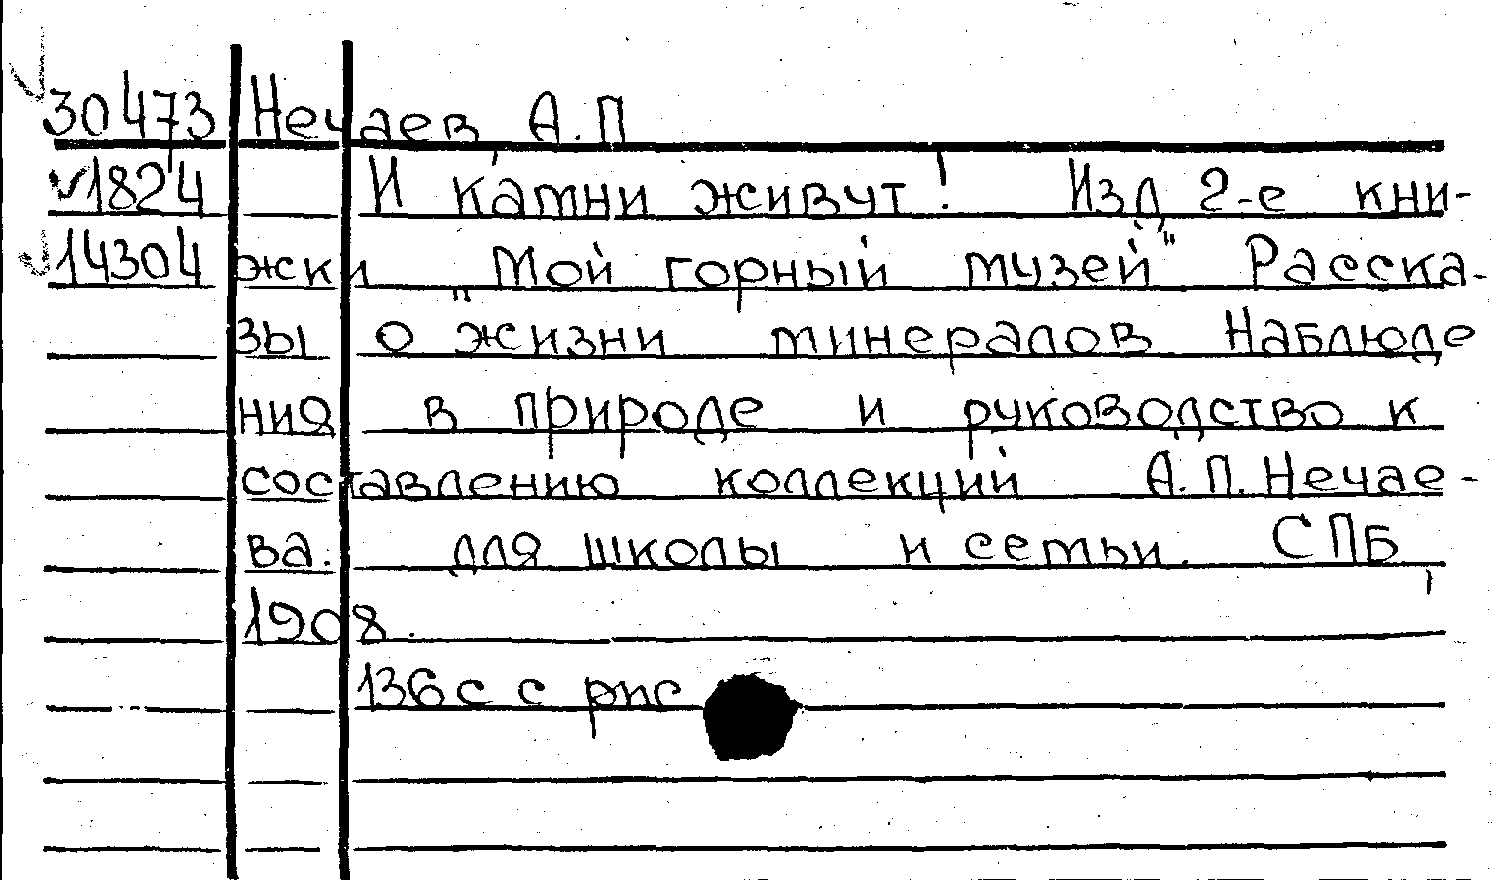 30473 Нечаев А.П
1824 И камни живут! Изд 2-е кни-
14304 жки „Мой горный музей" Расска-
зы о жизни минералов Наблюде
ния в природе и руководство к
составлению коллекций А.П.Нечае-
ва. для школы и семьи. СПБ,
1908.
136с с рис